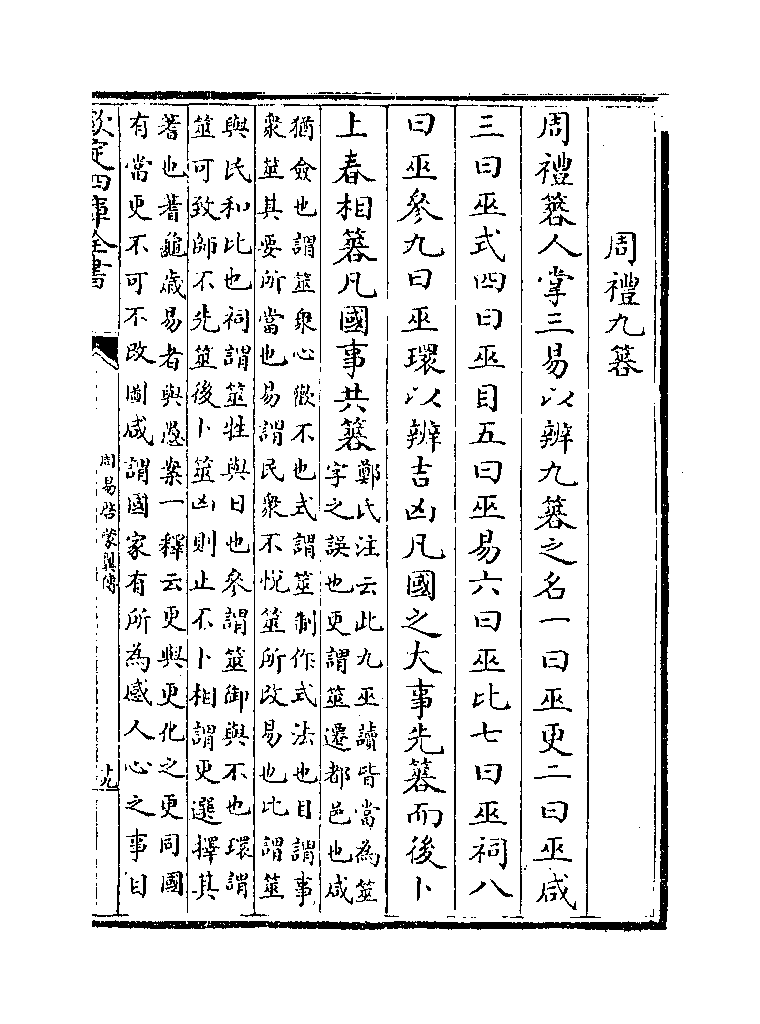 周禮九簭
周禮簭人掌三易以辨九簭之名一曰巫更二曰巫咸
三曰巫式四曰巫目五曰巫易六曰巫比七曰巫祠八
曰巫參九曰巫環以辨吉凶凡國之大事先簭而後卜
上春相簭凡國事共簭
鄭氏注云此九巫讀皆當為筮
字之誤也更謂筮遷都邑也咸
猶僉也謂筮衆心歡不也式謂筮制作式法也目謂事
衆筮其要所當也易謂民衆不悅筮所改易也比謂筮
與民和比也祠謂筮牲與日也參謂筮御與不也環謂
筮可致師不先筮後卜筮凶則止不卜相謂更選擇其
蓍也蓍龜歲易者與愚案一釋云更與更化之更同國
有當更不可不改圖咸謂國家有所為感人心之事目
欽定四庫全書
周易啓蒙翼傳
十九